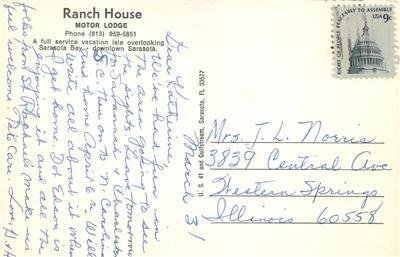 Ranch House
MOTOR LODGE
Phone (813) 959-5851
A full service vacation isle overlooking
Sarasota Bay - downtown Sarasota.
RIGHT OF PEOPLE PEACEABLY TO ASSEMBLE
USA 9c
March 31
Dear Katherine,
We've had fun in
the area going to see
the sights. Leave tomorrow
for Savannah & Charleston
S.C. then on to N. Carolina
and home April 6th. Will
write all about it when
I get home. Dot Edson is
enjoying it and all the
folks from St. Raphael make us
feel welcome. Take Care. Love
U. S. 41 and Gulfstream, Sarasota, FL 33577
Mrs. J. L. Norris
3839 Central Ave
Western Springs
Illinois 60558